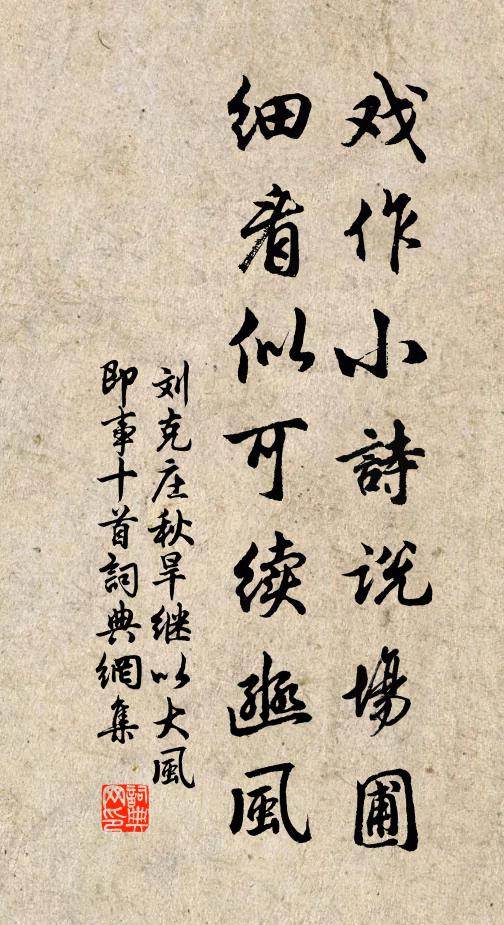 戏作小詩说場圃
细看似可续豳風
刘克庄秋旱继以大風
即事十首詞典網集
詞典网印